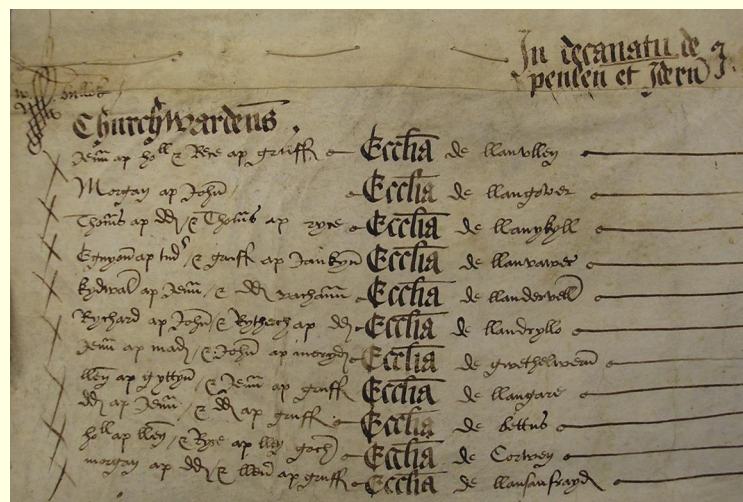 In decanatu de
penlen et Idern
Churchwardens
Jeuan ap holl & Rece ap gruff Ecclia de llanvlley
Morgan ap John Ecclia de llangower
Thoms ap dd & Thoms ap ryce Ecclia de llanykyll
Egnyon ap tudr & gruff ap Jankyn Ecclia de llanvawer
kydwal ap Jeuan & dd vachann Ecclia de llandervell
Rychard ap John & Rytherch ap dd Ecclia de llandryllo
Jeuan ap mad & John ap meryd Ecclia de gwethelwern
lleyn ap gyttyn & Jeuan ap gruff Ecclia de llangare
dd ap Jeuan & dd ap gruff Ecclia de bettus
holl ap lleyn & Ryse ap lleyn goch Ecclia de Corwen
morgan ap dd & lleyn ap gruff Ecclia de llansanfrayd